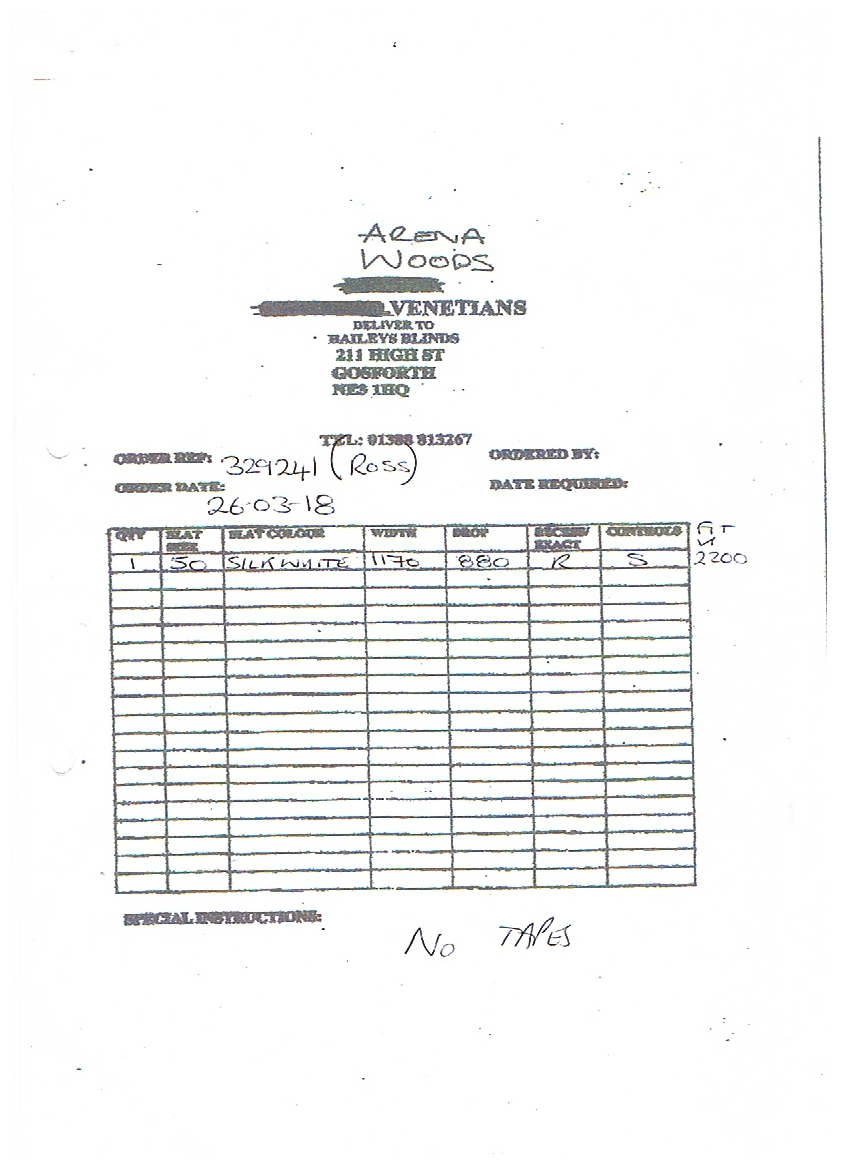 ARENA
WOODS
VENETIANS
DELIVER TO
BAILEYS BLINDS
211 HIGH ST
GOSFORTH
NE3 1HQ
TEL: 01388 813267
ORDER REF: 329241 (ROSS) ORDERED BY:
ORDER DATE: 26-03-18 DATE REQUIRED:
QTY SLAT SIZE SLAT COLOUR WIDTH DROP RECESS/ EXACT CONTROLS
1 50 SILK WHITE 1170 880 R S 2200
SPECIAL INSTRUCTIONS:
NO TAPES